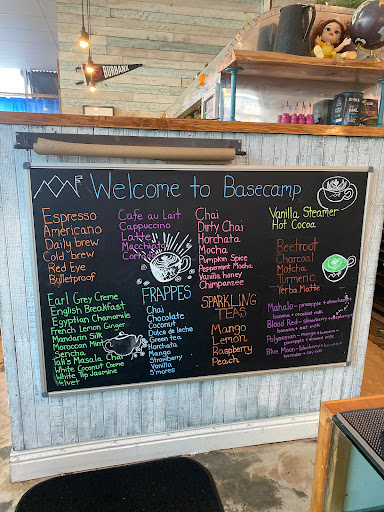 BURBANK
Welcome to Basecamp
Espresso
Americano
Daily brew
Cold brew
Red Eye
Bulletproof
Cafe au Lait
Cappuccino
Latte
Macchiato
Chai
Dirty Chai
Horchata
Mocha
Pumpkin Spice
Peppermint Mocha
Vanilla honey
Chimpanzee
Vanilla Steamer
Hot Cocoa
Beetroot
Charcoal
Matcha
Turmeric
Yerba Matte
Earl Grey Creme
English Breakfast
Egyptian Chamomile
French Lemon Ginger
Mandarin Silk
Moroccan Mint
Sencha
Tali's Masala Chai
White Coconut Creme
White Tip Jasmine
Velvet
FRAPPES
Chai
Chocolate
Coconut
Dulce de leche
Green tea
Horchata
Mango
Strawberry
Vanilla
S'mores
SPARKLING
TEAS
Mango
Lemon
Raspberry
Peach
Mahalo - pineapple + strawberry
+ coconut milk
Blood Red - strawberry + raspberry
banana + oat milk
Polynesian - mango + banana +
pineapple + almond milk
Blue Moon - blueberry +
lavender + soy milk